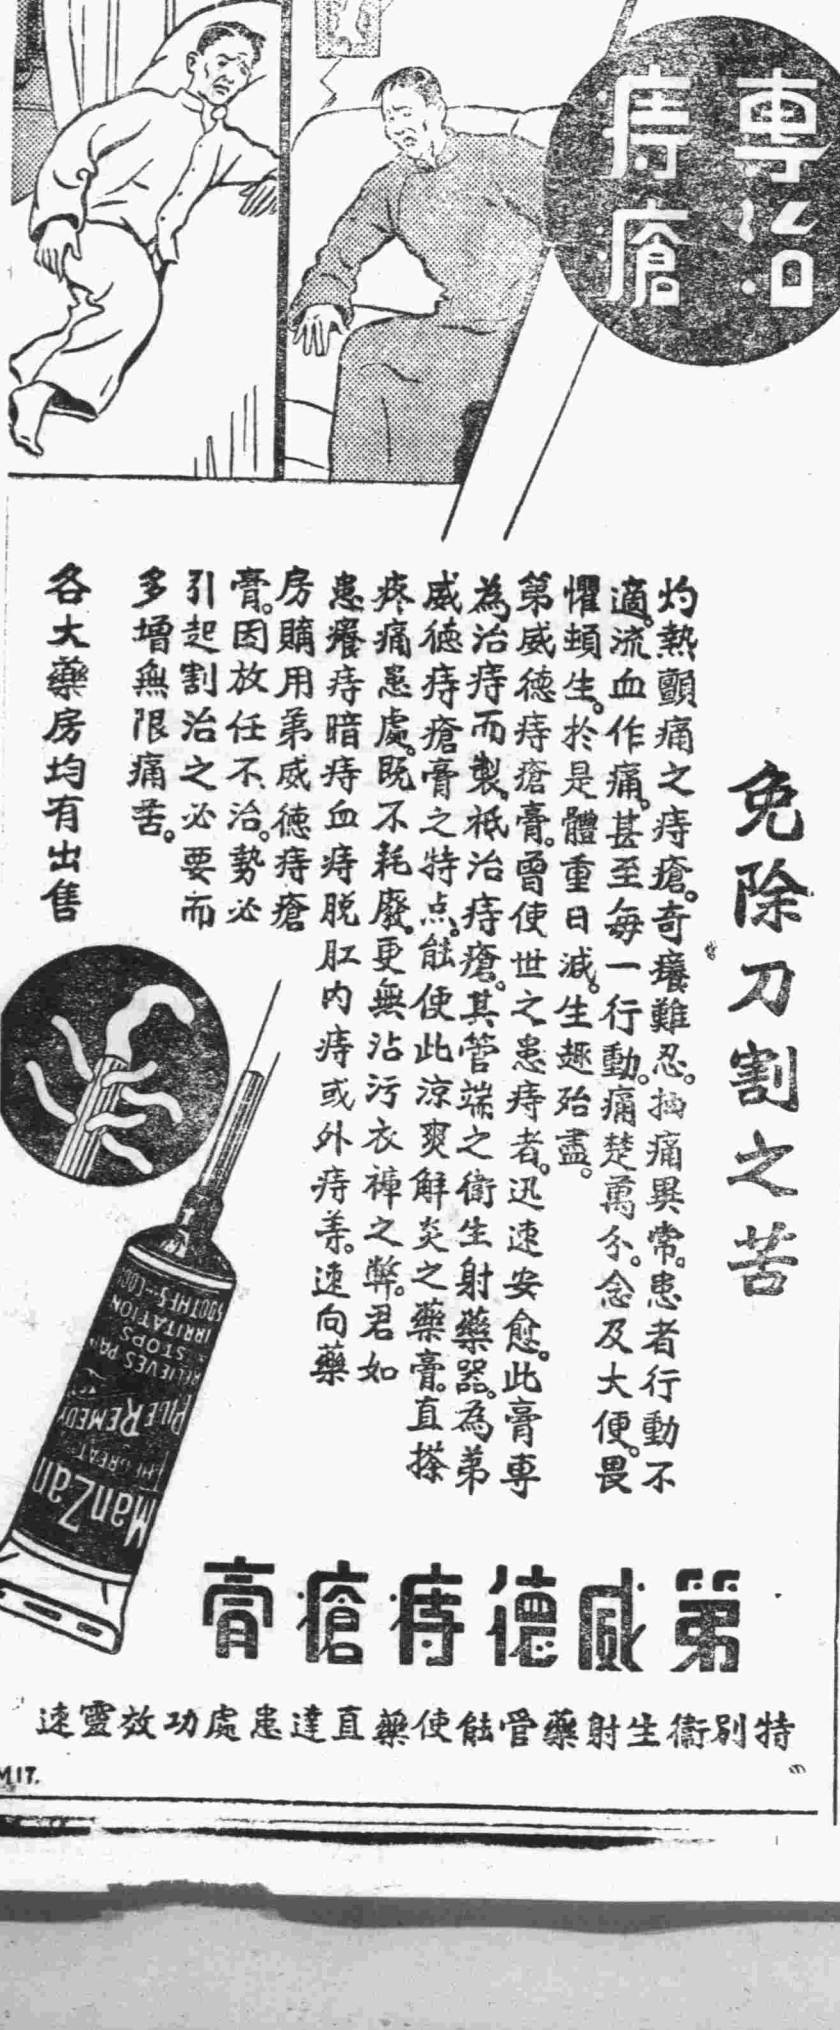 專治
痔瘡
免除刀割之苦
灼熱顫痛之痔瘡。奇癢難忍。抽痛異常。患者行動不
適。流血作痛。甚至每一行動。痛楚萬分。念及大便。畏
懼頓生。於是體重日減。生趣殆盡。
第威德痔瘡膏。曾使世之患痔者。迅速安愈。此膏專
為治痔而製。祇治痔瘡。其管端之衛生射藥器。為第
威德痔瘡膏之特点。能使此涼爽解炎之藥膏。直搽
疼痛患處。既不耗廢。更無沾污衣褲之弊。君如
患癢痔暗痔血痔脫肛內痔或外痔等。速向藥
房購用第威德痔瘡
膏。因放任不治。勢必
引起割治之必要而
多增無限痛苦。
各大藥房均有出售
ManZan
THE GREAT
PILE REMEDY
RELIEVES PAIN
STOPS
IRRITATION
第威德痔瘡膏
特別衛生射藥管能使藥直達患處功效靈速
M17.